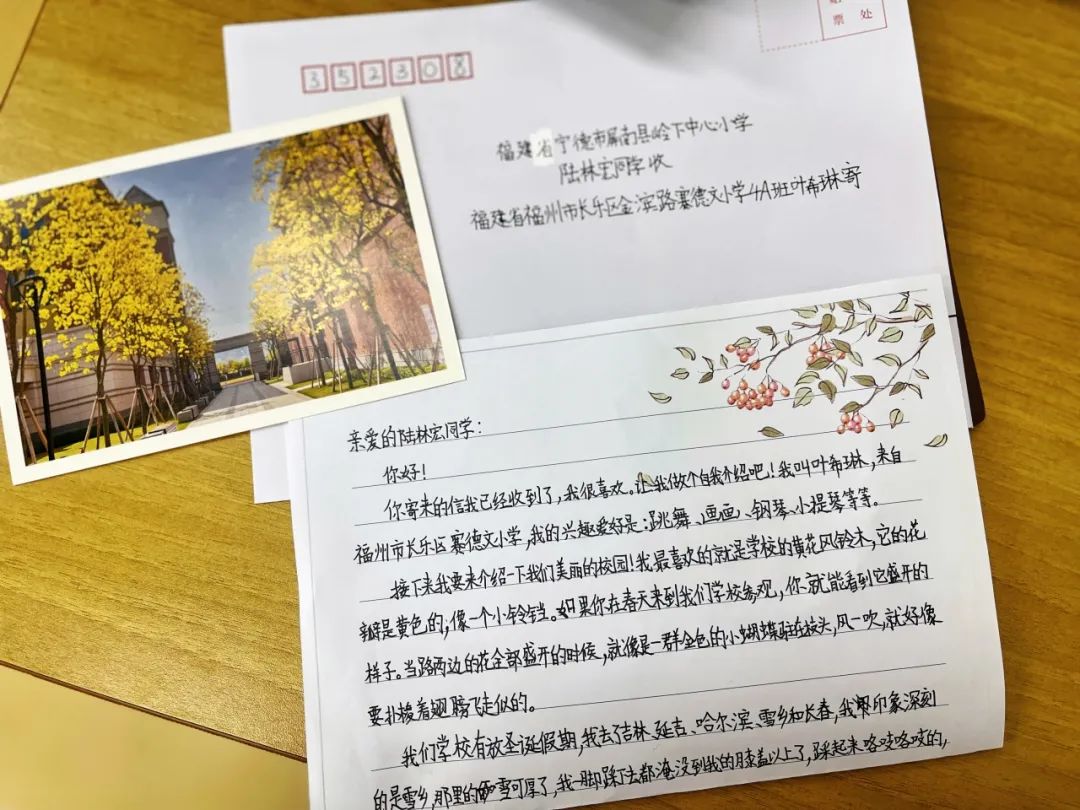 352308
票 处
福建省宁德市屏南县岭下中心小学
陆林宏同学收
福建省福州市长乐区金滨路赛德文小学4A班叶希琳寄
亲爱的陆林宏同学：
你好！
你寄来的信我已经收到了，我很喜欢。让我做个自我介绍吧！我叫叶希琳，来自
福州市长乐区赛德文小学，我的兴趣爱好是：跳舞、画画、钢琴、小提琴等等。
接下来我要来介绍一下我们美丽的校园！我最喜欢的就是学校的黄花风铃木，它的花
瓣是黄色的，像一个小铃铛。如果你在春天来到我们学校参观，你就能看到它盛开的
样子。当路两边的花全部盛开的时候，就像是一群金色的小蝴蝶驻在枝头，风一吹，就好像
要扑棱着翅膀飞走似的。
我们学校有放圣诞假期，我去了吉林、延吉、哈尔滨、雪乡和长春，我印象深刻
的是雪乡，那里的雪可厚了，我一脚踩下去都淹没到我的膝盖以上了，踩起来咯吱咯吱的，